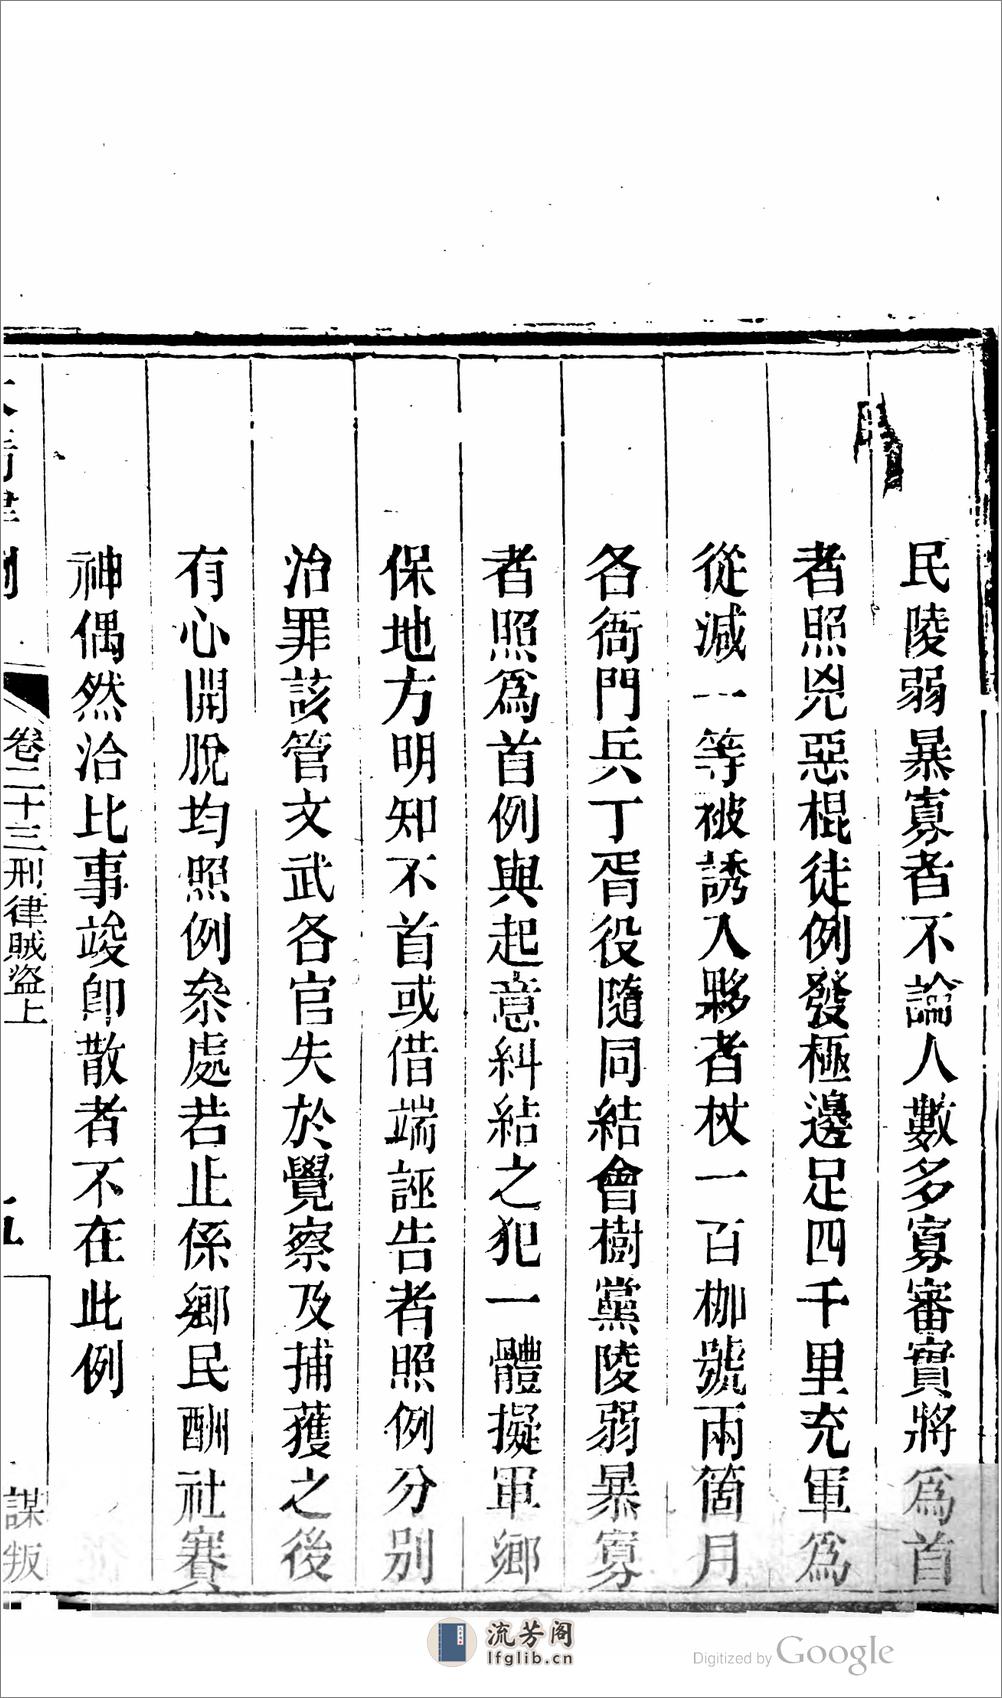 民陵弱暴寡者不論人數多寡審實將爲首
者照兇惡棍徒例發極邊足四千里充軍爲
從減一等被誘入夥者杖一百枷號兩箇月
各衙門兵丁胥役隨同結會樹黨陵弱暴寡
者照爲首例與起意糾結之犯一體擬軍鄉
保地方明知不首或借端誣告者照例分別
治罪該管文武各官失於覺察及捕獲之後
有心開脫均照例叅處若止係鄉民酬社賽
神偶然洽比事竣卽散者不在此例
卷二十三刑律賊盜上
謀叛
流芳阁
lfglib.cn
Digitized by Google